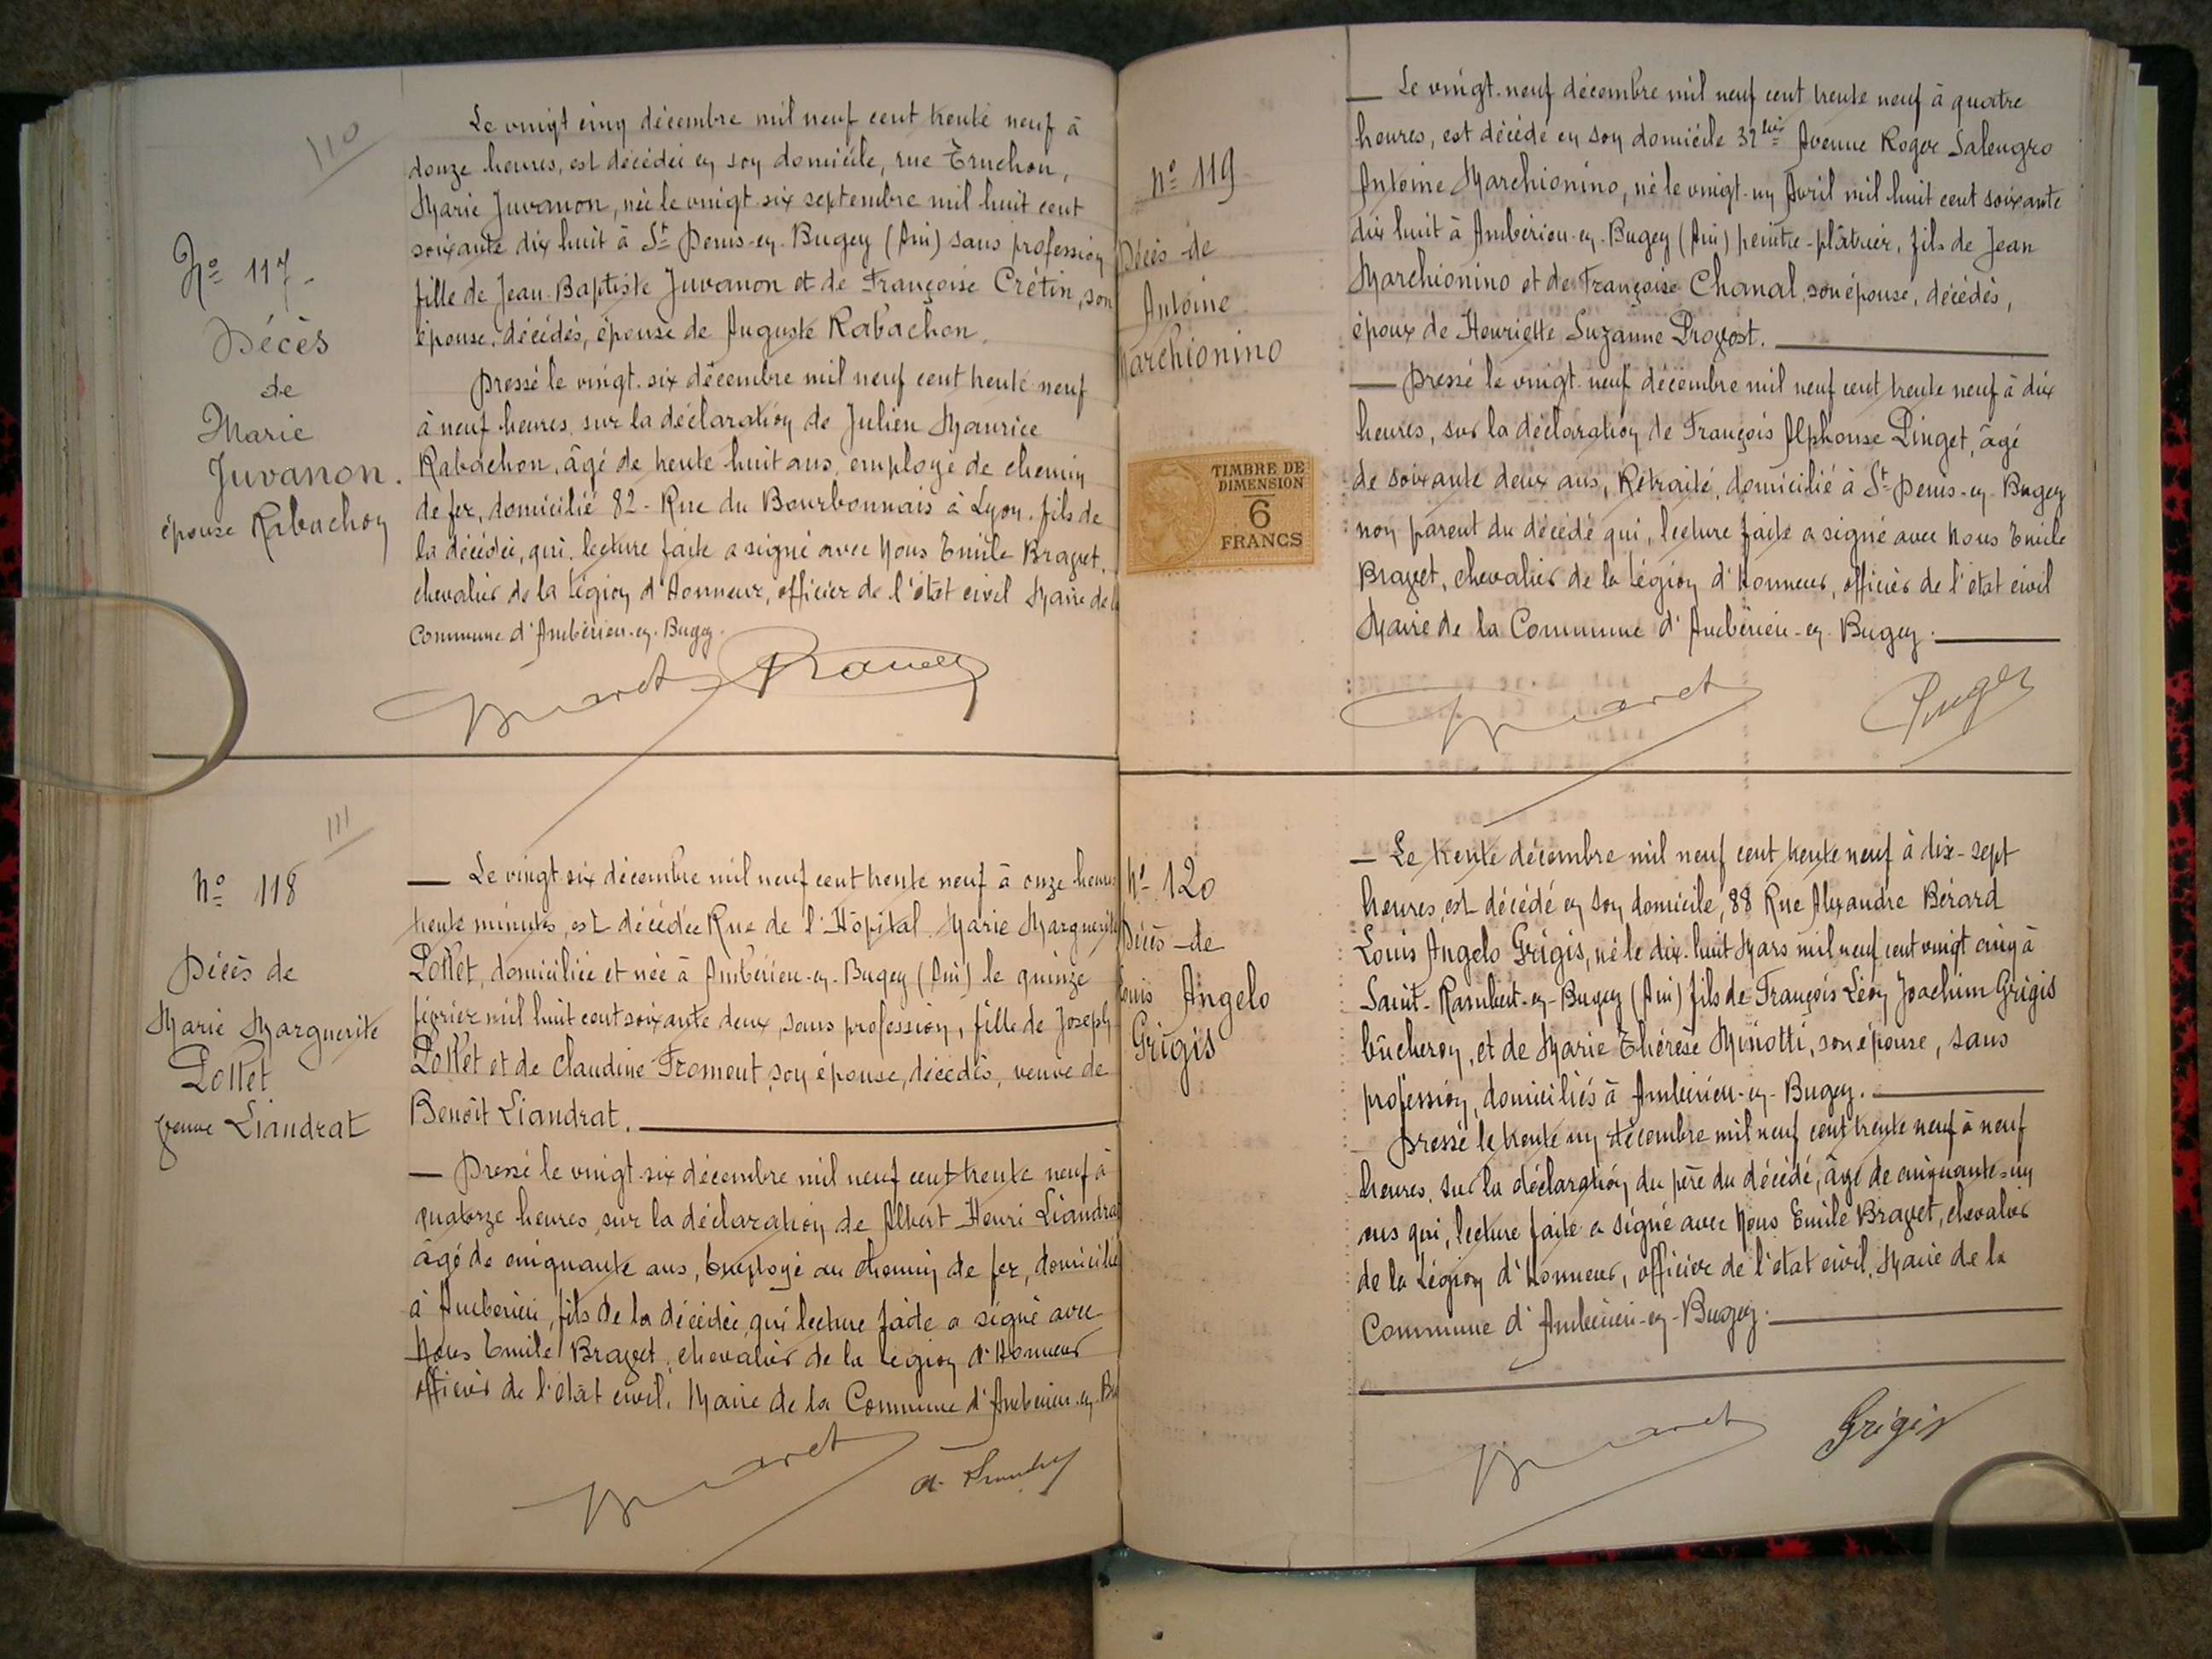 110
Nº 117-
Décès
de
Marie
Juvanon.
épouse Rabachon
Le vingt cinq décembre mil neuf cent trente neuf à
douze heures, est décédée en son domicile, rue Truchon,
Marie Juvanon, née le vingt six septembre mil huit cent
soixante dix huit à St Denis-en-Bugey (Ain) sans profession
fille de Jean-Baptiste Juvanon et de Françoise Crétin, son
épouse, décédés, épouse de Auguste Rabachon.
Dressé le vingt-six décembre mil neuf cent trente neuf
à neuf heures, sur la déclaration de Julien Maurice
Rabachon, âgé de trente huit ans, employé de chemin
de fer, domicilié 82 - Rue du Bourbonnais à Lyon, fils de
la décédée, qui, lecture faite a signé avec Nous Emile Bravet,
chevalier de la Légion d'Honneur, officier de l'état civil Maire de la
Commune d'Ambérieu-en-Bugey.
111
Nº 118
Décès de
Marie Marguerite
Pottet
veuve Liandrat
Le vingt-six décembre mil neuf cent trente neuf à onze heures
trente minutes, est décédée Rue de l'Hôpital, Marie Marguerite
Pottet, domiciliée et née à Ambérieu-en-Bugey (Ain) le quinze
février mil huit cent soixante deux, sans profession, fille de Joseph
Pottet et de Claudine Froment son épouse, décédés, veuve de
Benoît Liandrat.
Dressé le vingt-six décembre mil neuf cent trente neuf à
quatorze heures, sur la déclaration de Albert Henri Liandrat
âgé de cinquante ans, Employé au chemin de fer, domicilié
à Ambérieu, fils de la décédée, qui lecture faite a signé avec
Nous Emile Bravet, chevalier de la Légion d'Honneur
officier de l'état civil, Maire de la Commune d'Ambérieu-en-Bu
Nº 119
Décès de
Antoine
Marchionino
TIMBRE DE
DIMENSION
6
FRANCS
Le vingt-neuf décembre mil neuf cent trente neuf à quatre
heures, est décédé en son domicile 32 bis Avenue Roger Salengro
Antoine Marchionino, né le vingt-un Avril mil huit cent soixante
dix huit à Ambérieu-en-Bugey (Ain) peintre-plâtrier, fils de Jean
Marchionino et de Françoise Chanal, son épouse, décédés,
époux de Henriette Suzanne Provost.
Dressé le vingt-neuf décembre mil neuf cent trente neuf à dix
heures, sur la déclaration de François Alphonse Pinget, âgé
de soixante deux ans, Retraité, domicilié à St-Denis-en-Bugey
non parent du décédé qui, lecture faite a signé avec Nous Emile
Bravet, chevalier de la Légion d'Honneur, officier de l'état civil
Maire de la Commune d'Ambérieu-en-Bugey.
Nº 120
Décès de
Louis Angelo
Grigis
Le trente décembre mil neuf cent trente neuf à dix-sept
heures, est décédé en son domicile, 88 Rue Alexandre Bérard
Louis Angelo Grigis, né le dix-huit Mars mil neuf cent vingt cinq à
Saint-Rambert-en-Bugey (Ain) fils de François Léon Joachim Grigis
bûcheron, et de Marie Thérèse Minotti, son épouse, sans
profession, domiciliés à Ambérieu-en-Bugey.
Dressé le trente un décembre mil neuf cent trente neuf à neuf
heures, sur la déclaration du père du décédé, âgé de cinquante-un
ans qui, lecture faite a signé avec Nous Emile Bravet, chevalier
de la Légion d'Honneur, officier de l'état civil, Maire de la
Commune d'Ambérieu-en-Bugey.
Grigis